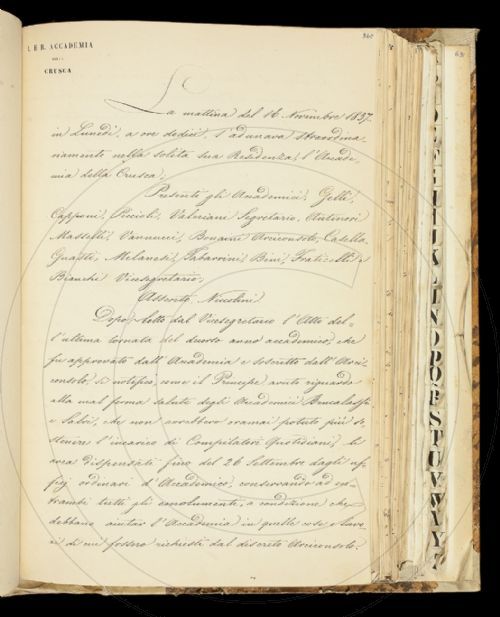 I. E R. ACCADEMIA
DELLA
CRUSCA
La mattina del 16 Novembre 1857.
in Lunedì, a ore dodici, s'adunava straordina-
riamente nella solita sua Residenza, l'Accade-
mia della Crusca;
Presenti gli Accademici, Gelli,
Capponi, Valeriani Segretario,
Vannucci, Bonaini Arciconsolo, Casella,
Guasti, Milanesi, Tabarrini, Bini, Fraticelli e
Bianchi Vicesegretario;
Assente Niccolini
Dopo letto dal Vicesegretario l'Atto del-
l'ultima tornata del decorso anno accademico, che
fu approvato dall'Accademia e soscritto dall'Arci-
consolo, si notificò, come il Principe avuto riguardo
alla mal ferma salute degli Accademici Bencalassi
e Salvi, che non avrebbero oramai potuto più so-
stenere l'incarico di Compilatori Quotidiani, li
avea dispensati fino del 26 Settembre dagli uf-
ficj ordinari d'Accademico, conservando ad en-
trambi tutti gli emolumenti, a condizione che
debbano aiutar l'Accademia in quelle cose e lavo-
ri di cui fossero richiesti dal discreto Arciconsolo.